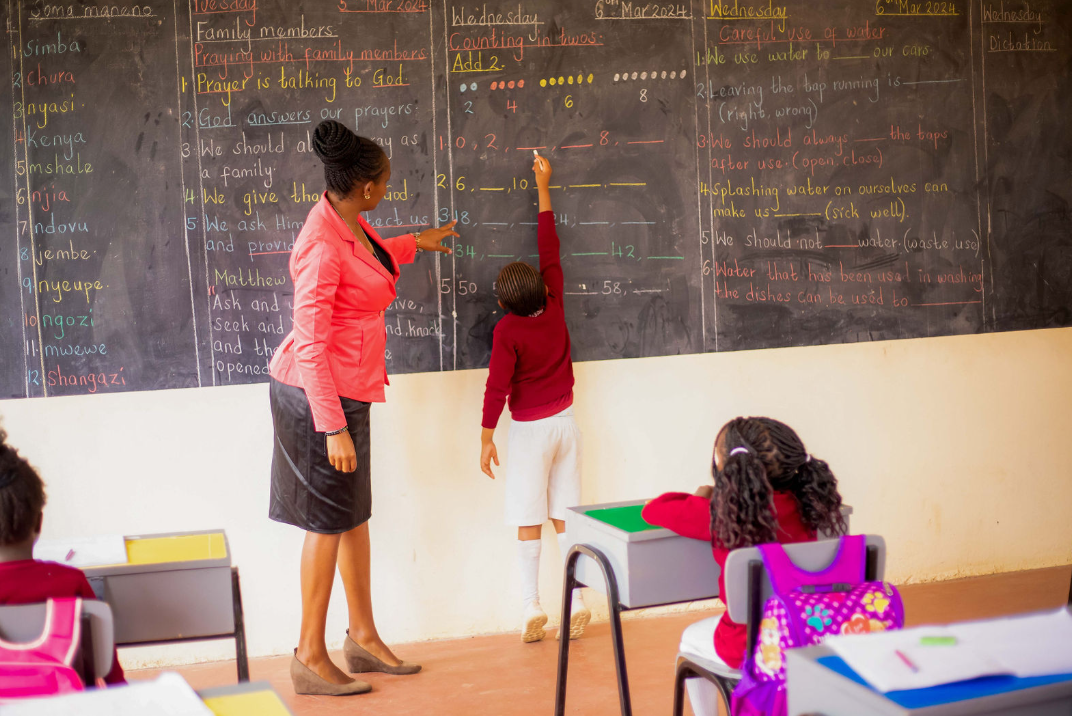 Soma maneno
1 Simba
2 Chura
3 nyasi
4 Kenya
5 mshale
6 njia
7 ndovu
8 jembe
9 nyeupe
10 ngozi
11 mwewe
12 Shangazi
Tuesday 5 Mar 2024
Family members
Praying with family members
1. Prayer is talking to God.
2. God answers our prayers.
3. We should as
a family.
4. We give
5. We ask us
and
Matthew
"Ask and
seek and knock
and
opened
Wednesday 6th Mar 2024
Counting in twos.
Add 2.
2 4 6 8
1. 0, 2, __, __, 8, __
2. 6, __, 10, __, __, __
__, __, __
34, __, __ 42, __
5. 50 __ 58, __
Wednesday 6th Mar 2024
Careful use of water
1. We use water to ____ our cars.
2. Leaving the tap running is ____
(right, wrong)
3. We should always ____ the taps
after use. (open, close)
4. Splashing water on ourselves can
make us ____ (sick well).
5. We should not ____ water. (waste, use)
6. Water that has been used in washing
the dishes can be used to ____
Wednesday
Dictation